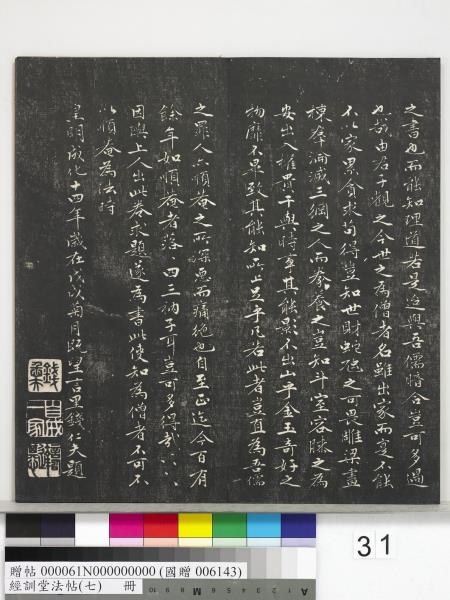 之書也而能知理道若是迨與吾儒暗合豈可多過
也哉由君子觀之今世之為僧者名雖出家而實不能
不以家累貪求苟得豈知世財蛇虺之可畏雕梁畫
棟奔湎滅三綱之人而豢養之豈知斗室容膝之為
安出入權貴干與時事其能影不出山乎金玉奇好之
物靡不畢致其能知所止足乎凡若此者豈直為吾儒
之罪人亦順菴之所深惡而痛絕也自至正迄今百有
餘年如順菴者落落四三衲子耳豈可多得哉
因與上人出此卷求題遂為書此使知為僧者不可不
以順菴為法時
皇明成化十四年歲在戊戌菊月既望言里錢仁夫題
31
贈帖 000061N000000000 (國贈 006143)
經訓堂法帖(七) 冊